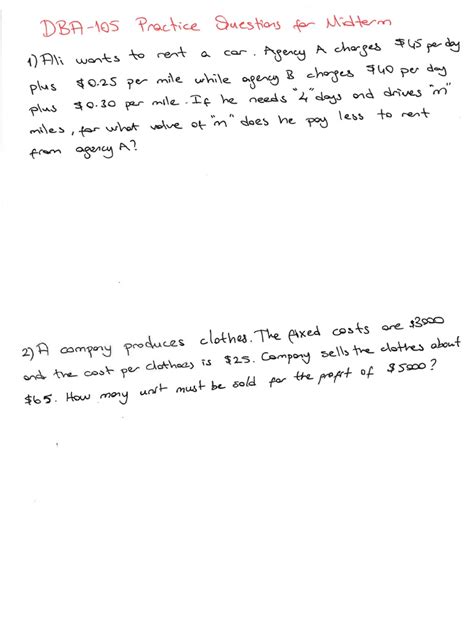 DBA-105 Practice Questions for Midterm
1) Ali wants to rent a car. Agency A charges $45 per day
plus $0.25 per mile while agency B charges $40 per day
plus $0.30 per mile. If he needs "4" days and drives "m"
miles, for what value of "m" does he pay less to rent
from agency A?
2) A company produces clothes. The fixed costs are $3000
and the cost per clothes is $25. Company sells the clothes about
$65. How many unit must be sold for the profit of $5000?